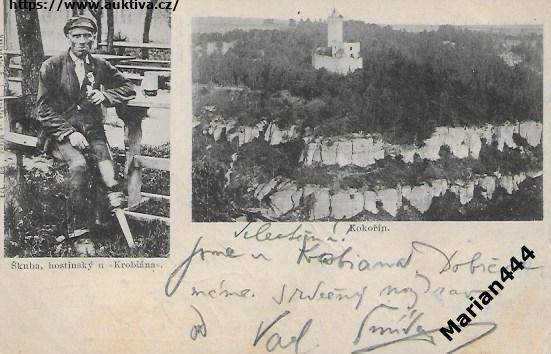 https://www.auktiva.cz/
Škuba, hostinský u «Krobiána».
Kokořín.
jsme u Kobiana
máme. Srdečný pozdrav
od Vad.
Marian444